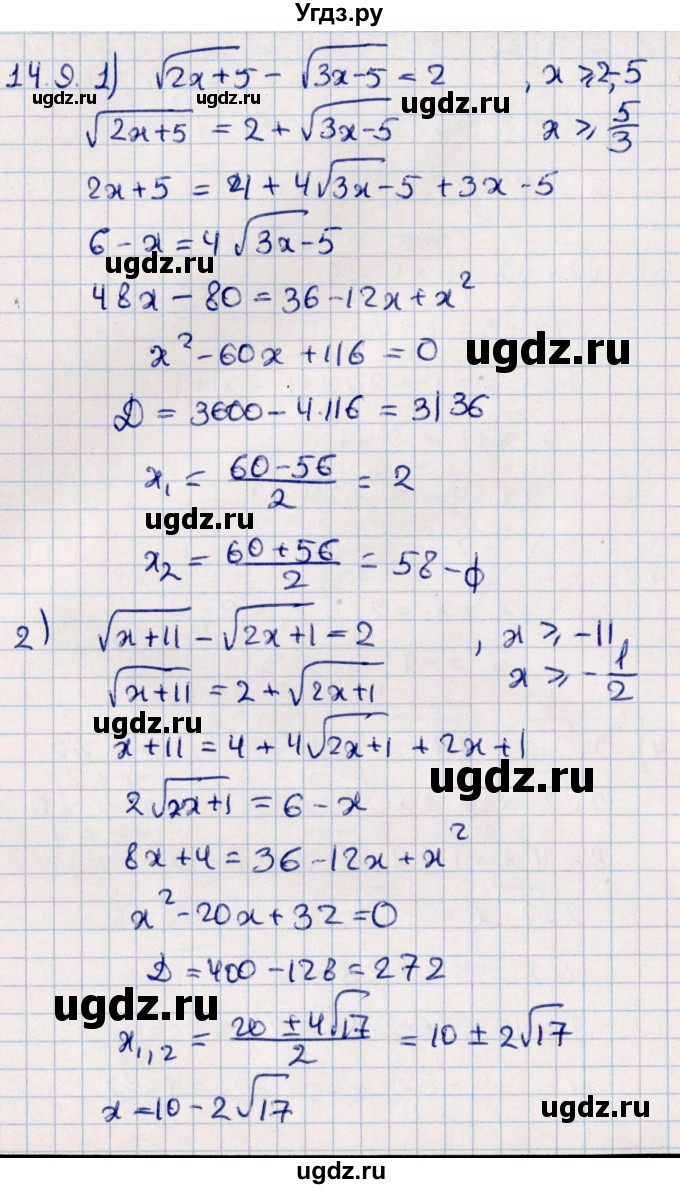 Угдз.ру
14.9. 1) √(2x+5) − √(3x−5) = 2 , x ≥ −2,5
ugdz.ru ugdz.ru ugdz.ru
√(2x+5) = 2 + √(3x−5) x ≥ 5/3
2x+5 = 4 + 4√(3x−5) + 3x −5
6 − x = 4√(3x−5)
ugdz.ru
48x − 80 = 36 −12x + x²
x² −60x + 116 = 0 ugdz.ru
Д = 3600 − 4·116 = 3136
x₁ = (60−56)/2 = 2
ugdz.ru
x₂ = (60+56)/2 = 58 − ф
2) √(x+11) − √(2x+1) = 2 , x ≥ −11
√(x+11) = 2 + √(2x+1) x ≥ −1/2
ugdz.ru
x+11 = 4 + 4√(2x+1) + 2x+1
ugdz.ru
2√(2x+1) = 6 − x
8x+4 = 36 −12x + x²
x² −20x + 32 = 0
Д = 400 −128 = 272
ugdz.ru
x₁,₂ = (20 ± 4√17)/2 = 10 ± 2√17
x = 10 − 2√17
ugdz.ru ugdz.ru
ugdz.ru